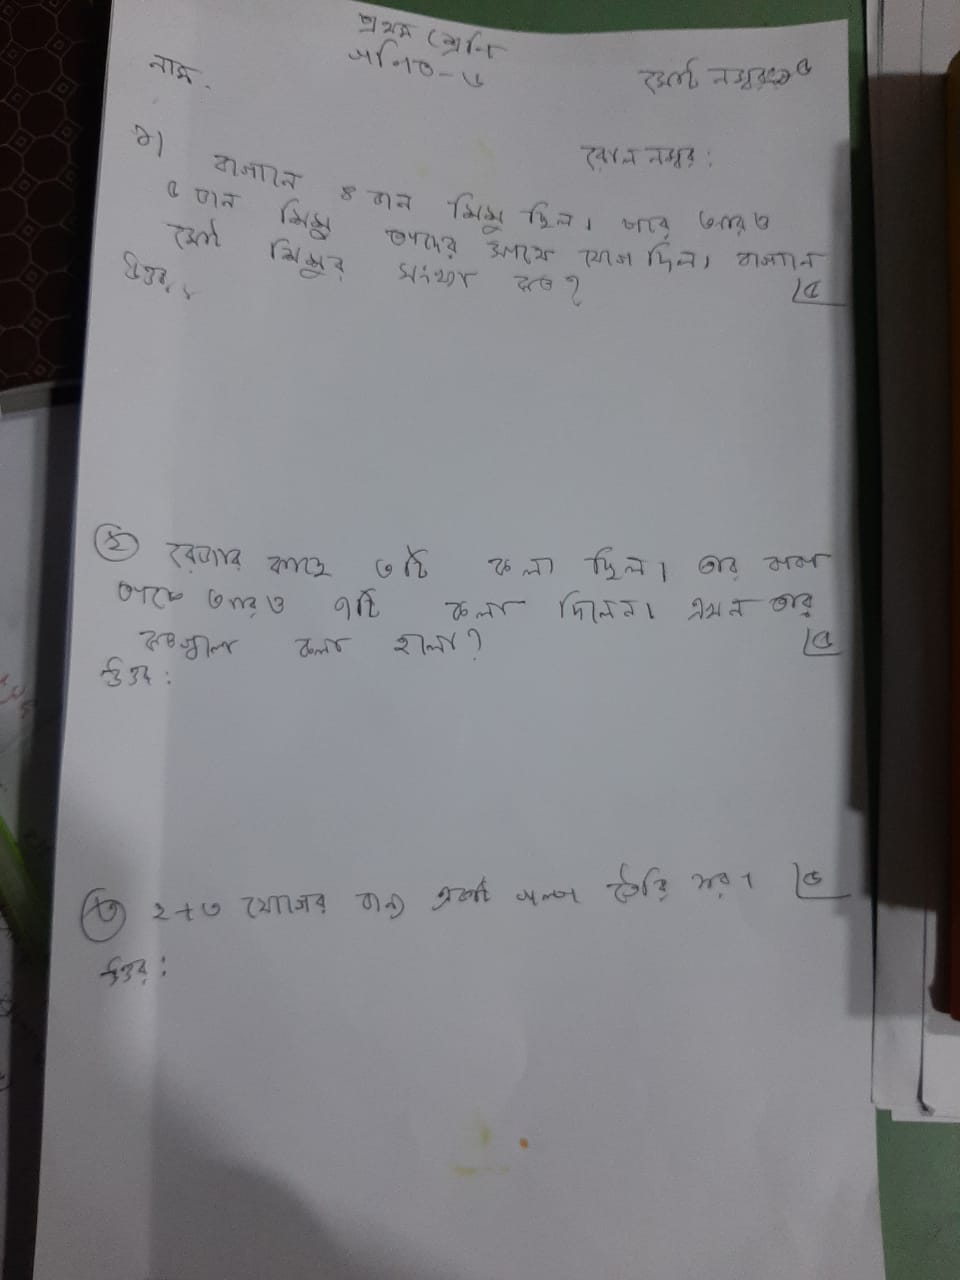 প্রথম শ্রেণি
গণিত - ৩
নাম.
মোট নম্বর
রোল নম্বর:
১) বাগানে ৪ জন শিশু ছিল। পরে আরও
৫ জন শিশু তাদের সাথে যোগ দিল। বাগানে
মোট শিশুর সংখ্যা কত? ৫
উত্তর:
২ রেজার কাছে ৩টি কলা ছিল। তার মামা
তাকে আরও ৭টি কলা দিলেন। এখন তার
কতগুলো কলা হলো? ৫
উত্তর:
৩ ২+৩ যোগের জন্য একটা গল্প তৈরি কর। ৫
উত্তর: